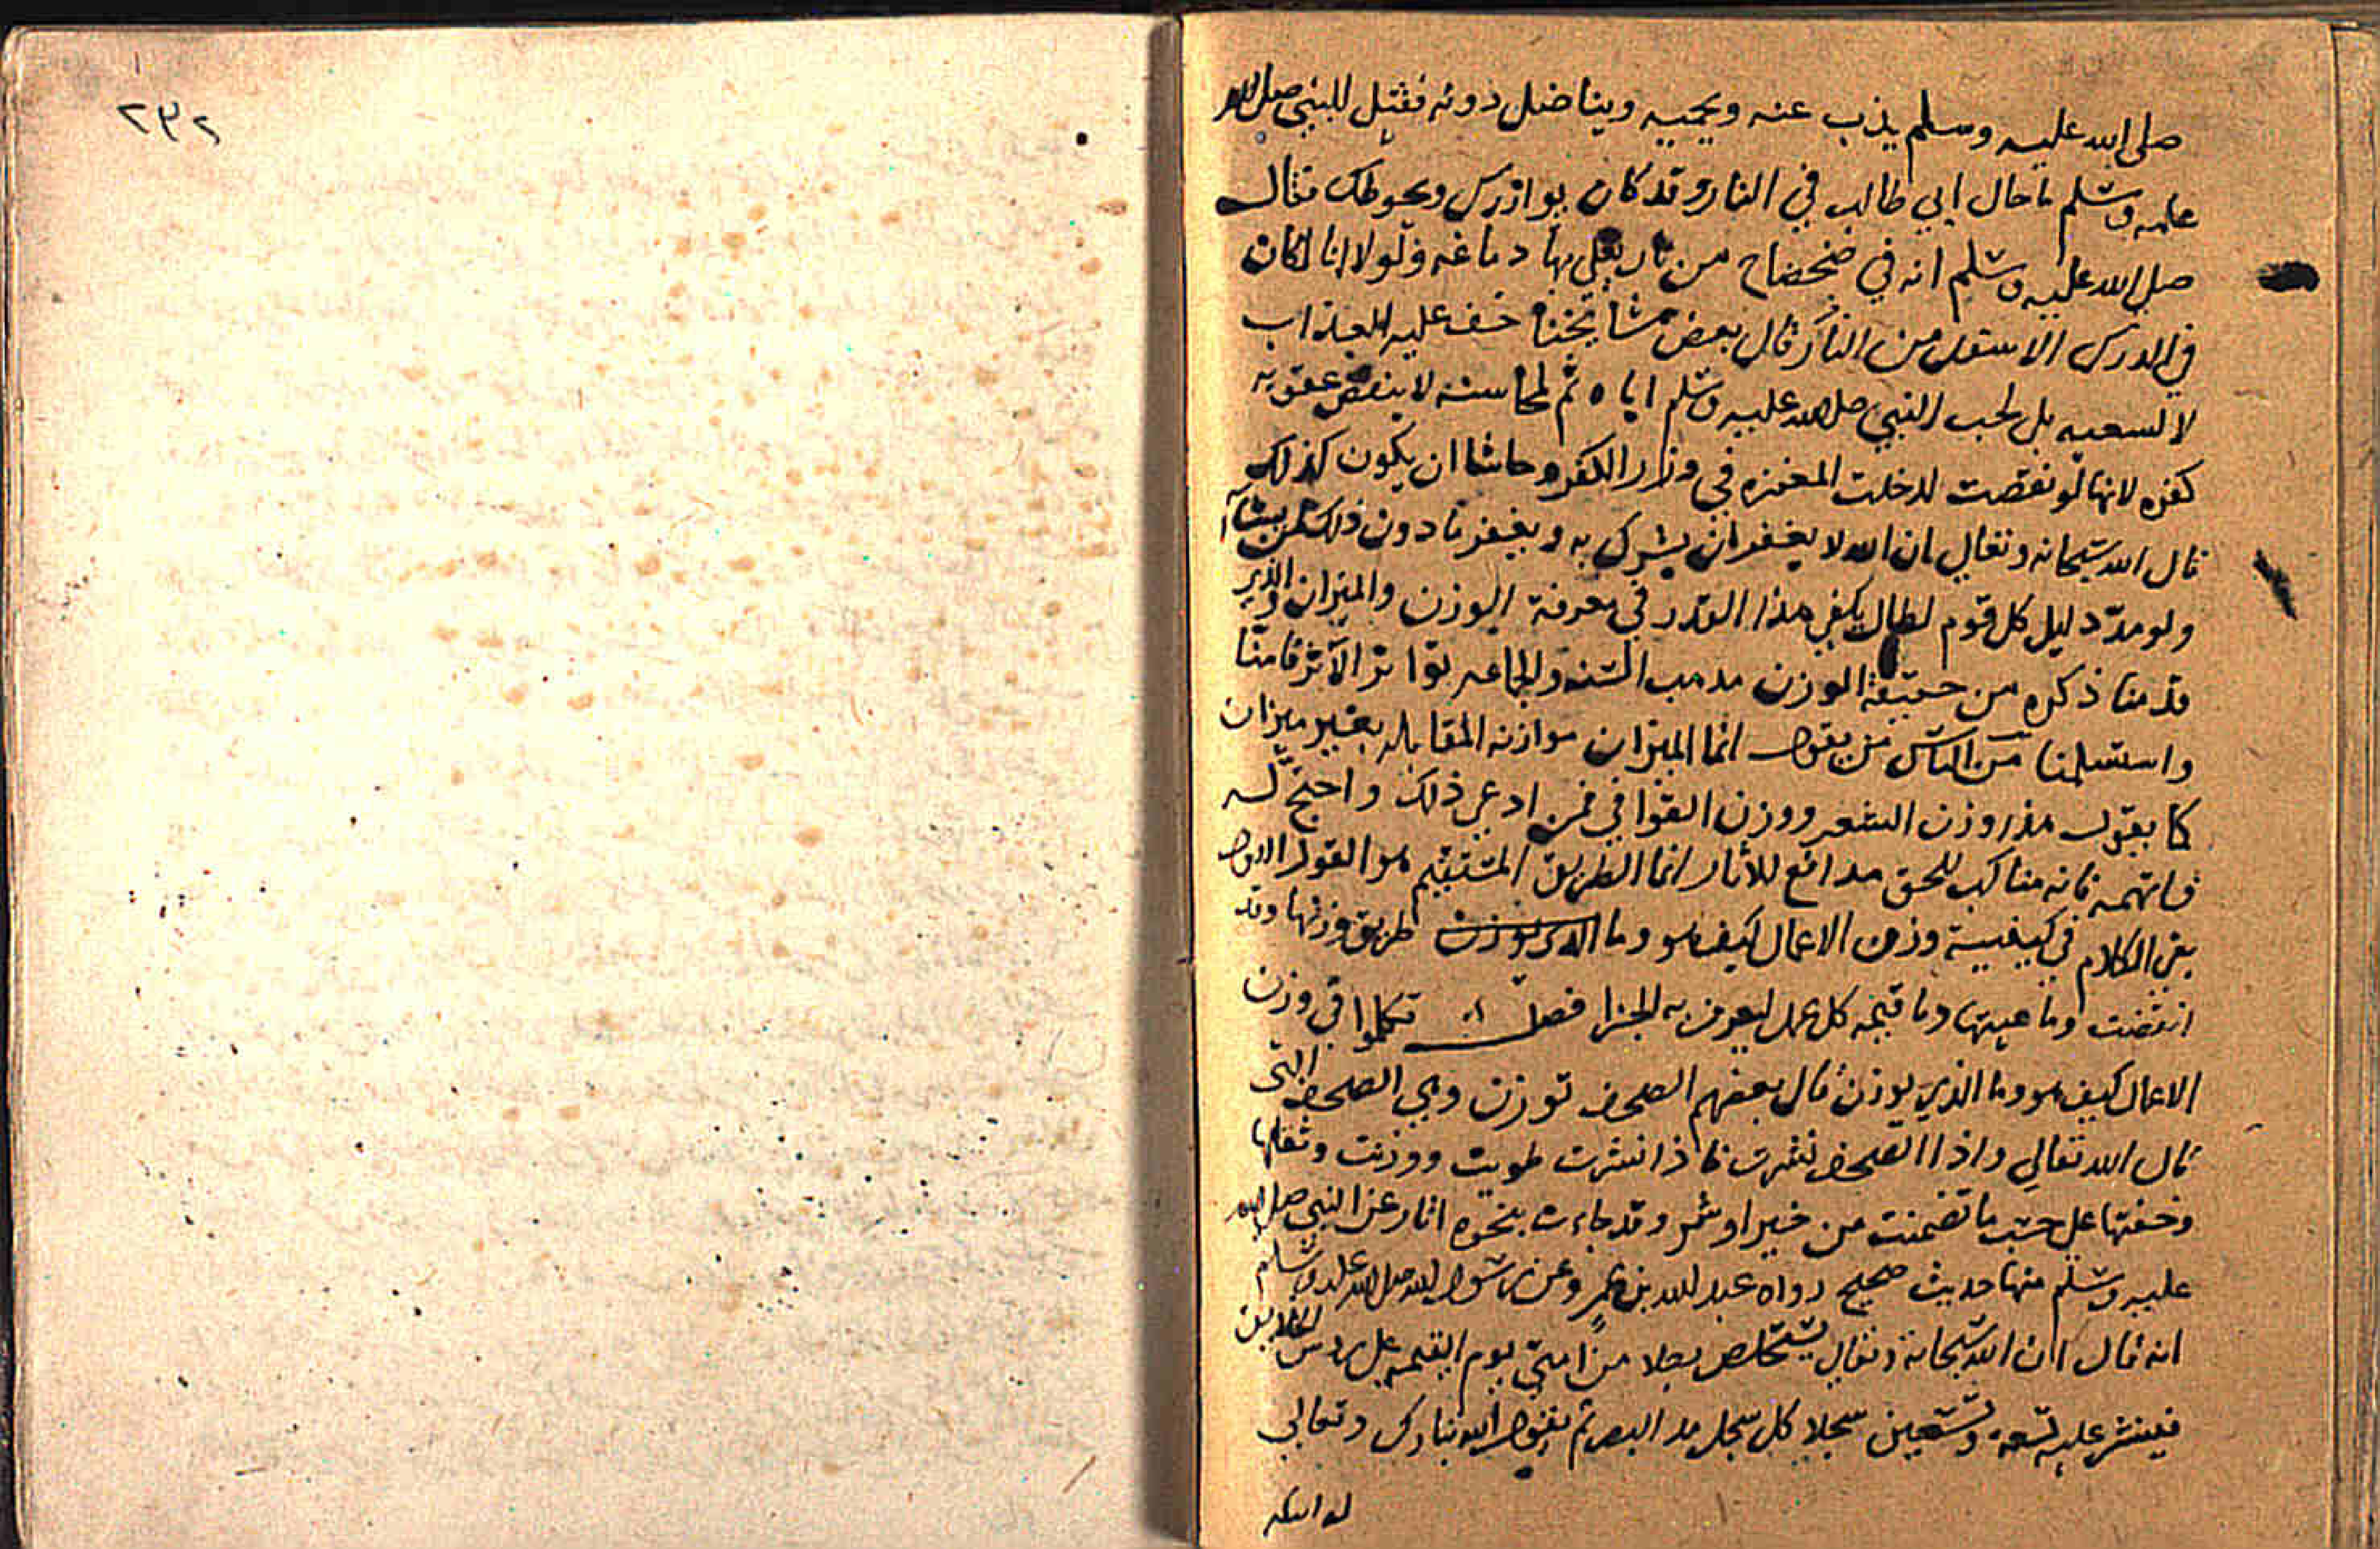 صلى الله عليه وسلم يذب عنه ويحميه ويناضل دونه فقيل للنبي صلى الله
عليه وسلم ما حال ابي طالب في النار وقد كان يوازرك ويحوطك فقال
صلى الله عليه وسلم انه في ضحضاح من نار يغلي بها دماغه ولولا انا لكان
في الدرك الاسفل من النار قال بعض مشايخنا خفف عليه العذاب
لا لسعيه بل لحب النبي صلى الله عليه وسلم اياه ثم لمحاسنه لا ينقص عقوبة
كفره لانها لو نقصت لدخلت المغفرة في وزار الكفر وحاشا ان يكون كذلك
قال الله سبحانه وتعالى ان الله لا يغفر ان يشرك به ويغفر ما دون ذلك لمن يشا
ولو مد دليل كل قوم لطال يكفي هذا القدر في معرفة الوزن والميزان والذي
قدمنا ذكره من حقيقة الوزن مذهب السنة والجماعه بتواتر الآثر فامنا
واستسلمنا من الناس من يقول انما الميزان موازنه المقابله بغير ميزان
كما يقول هذا وزن الشعر ووزن القوافي فمن ادعى ذلك واحتج له
فاتهمه فانه مناكب للحق مدافع للاثار انما الطريق المستقيم هو القول الاول
بقي الكلام في كيفيية وزن الاعمال كيف هو وما الذي يوزن طريق وزنها وقد
انقضت وما هيتها وما قيمه كل عمل ليعرف به الجزا فصل تكلموا في وزن
الاعمال كيف هو وما الذي يوزن قال بعضهم الصحف توزن وهي الصحف التي
قال الله تعالى واذا الصحف نشرت فاذا نشرت طويت ووزنت وثقلها
وخفتها على حسب ما تضمنت من خير او شر وقد جاءت بنحوه اثار عن النبي صلى الله
عليه وسلم منها حديث صحيح رواه عبد الله بن عمر وعن رسول الله صلى الله عليه وسلم
انه قال ان الله سبحانه وتعالى يستخلص رجلا من امتي يوم القيمه على روس الخلايق
فينشر عليه تسعة وتسعين سجلا كل سجل مد البصر ثم يقول الله تبارك وتعالى
٢٣٢